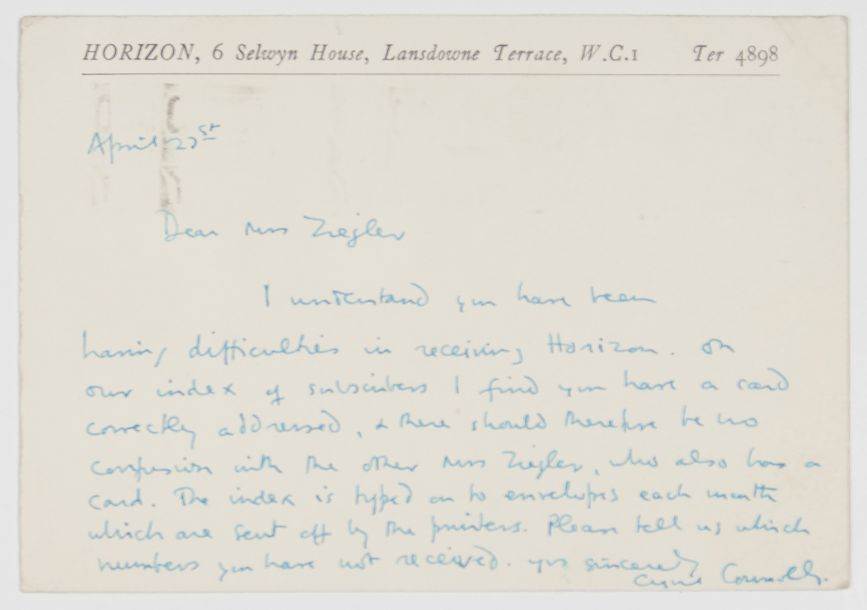 HORIZON, 6 Selwyn House, Lansdowne Terrace, W.C.1 Ter 4898
April
Dear Mrs Ziegler
I understand you have been
having difficulties in receiving Horizon. On
our index of subscribers I find you have a card
correctly addressed, & there should therefore be no
confusion with the other Mrs Ziegler, who also has a
card. The index is typed on to envelopes each month
which are sent off by the printers. Please tell us which
numbers you have not received. yrs sincerely
Cyril Connolly.